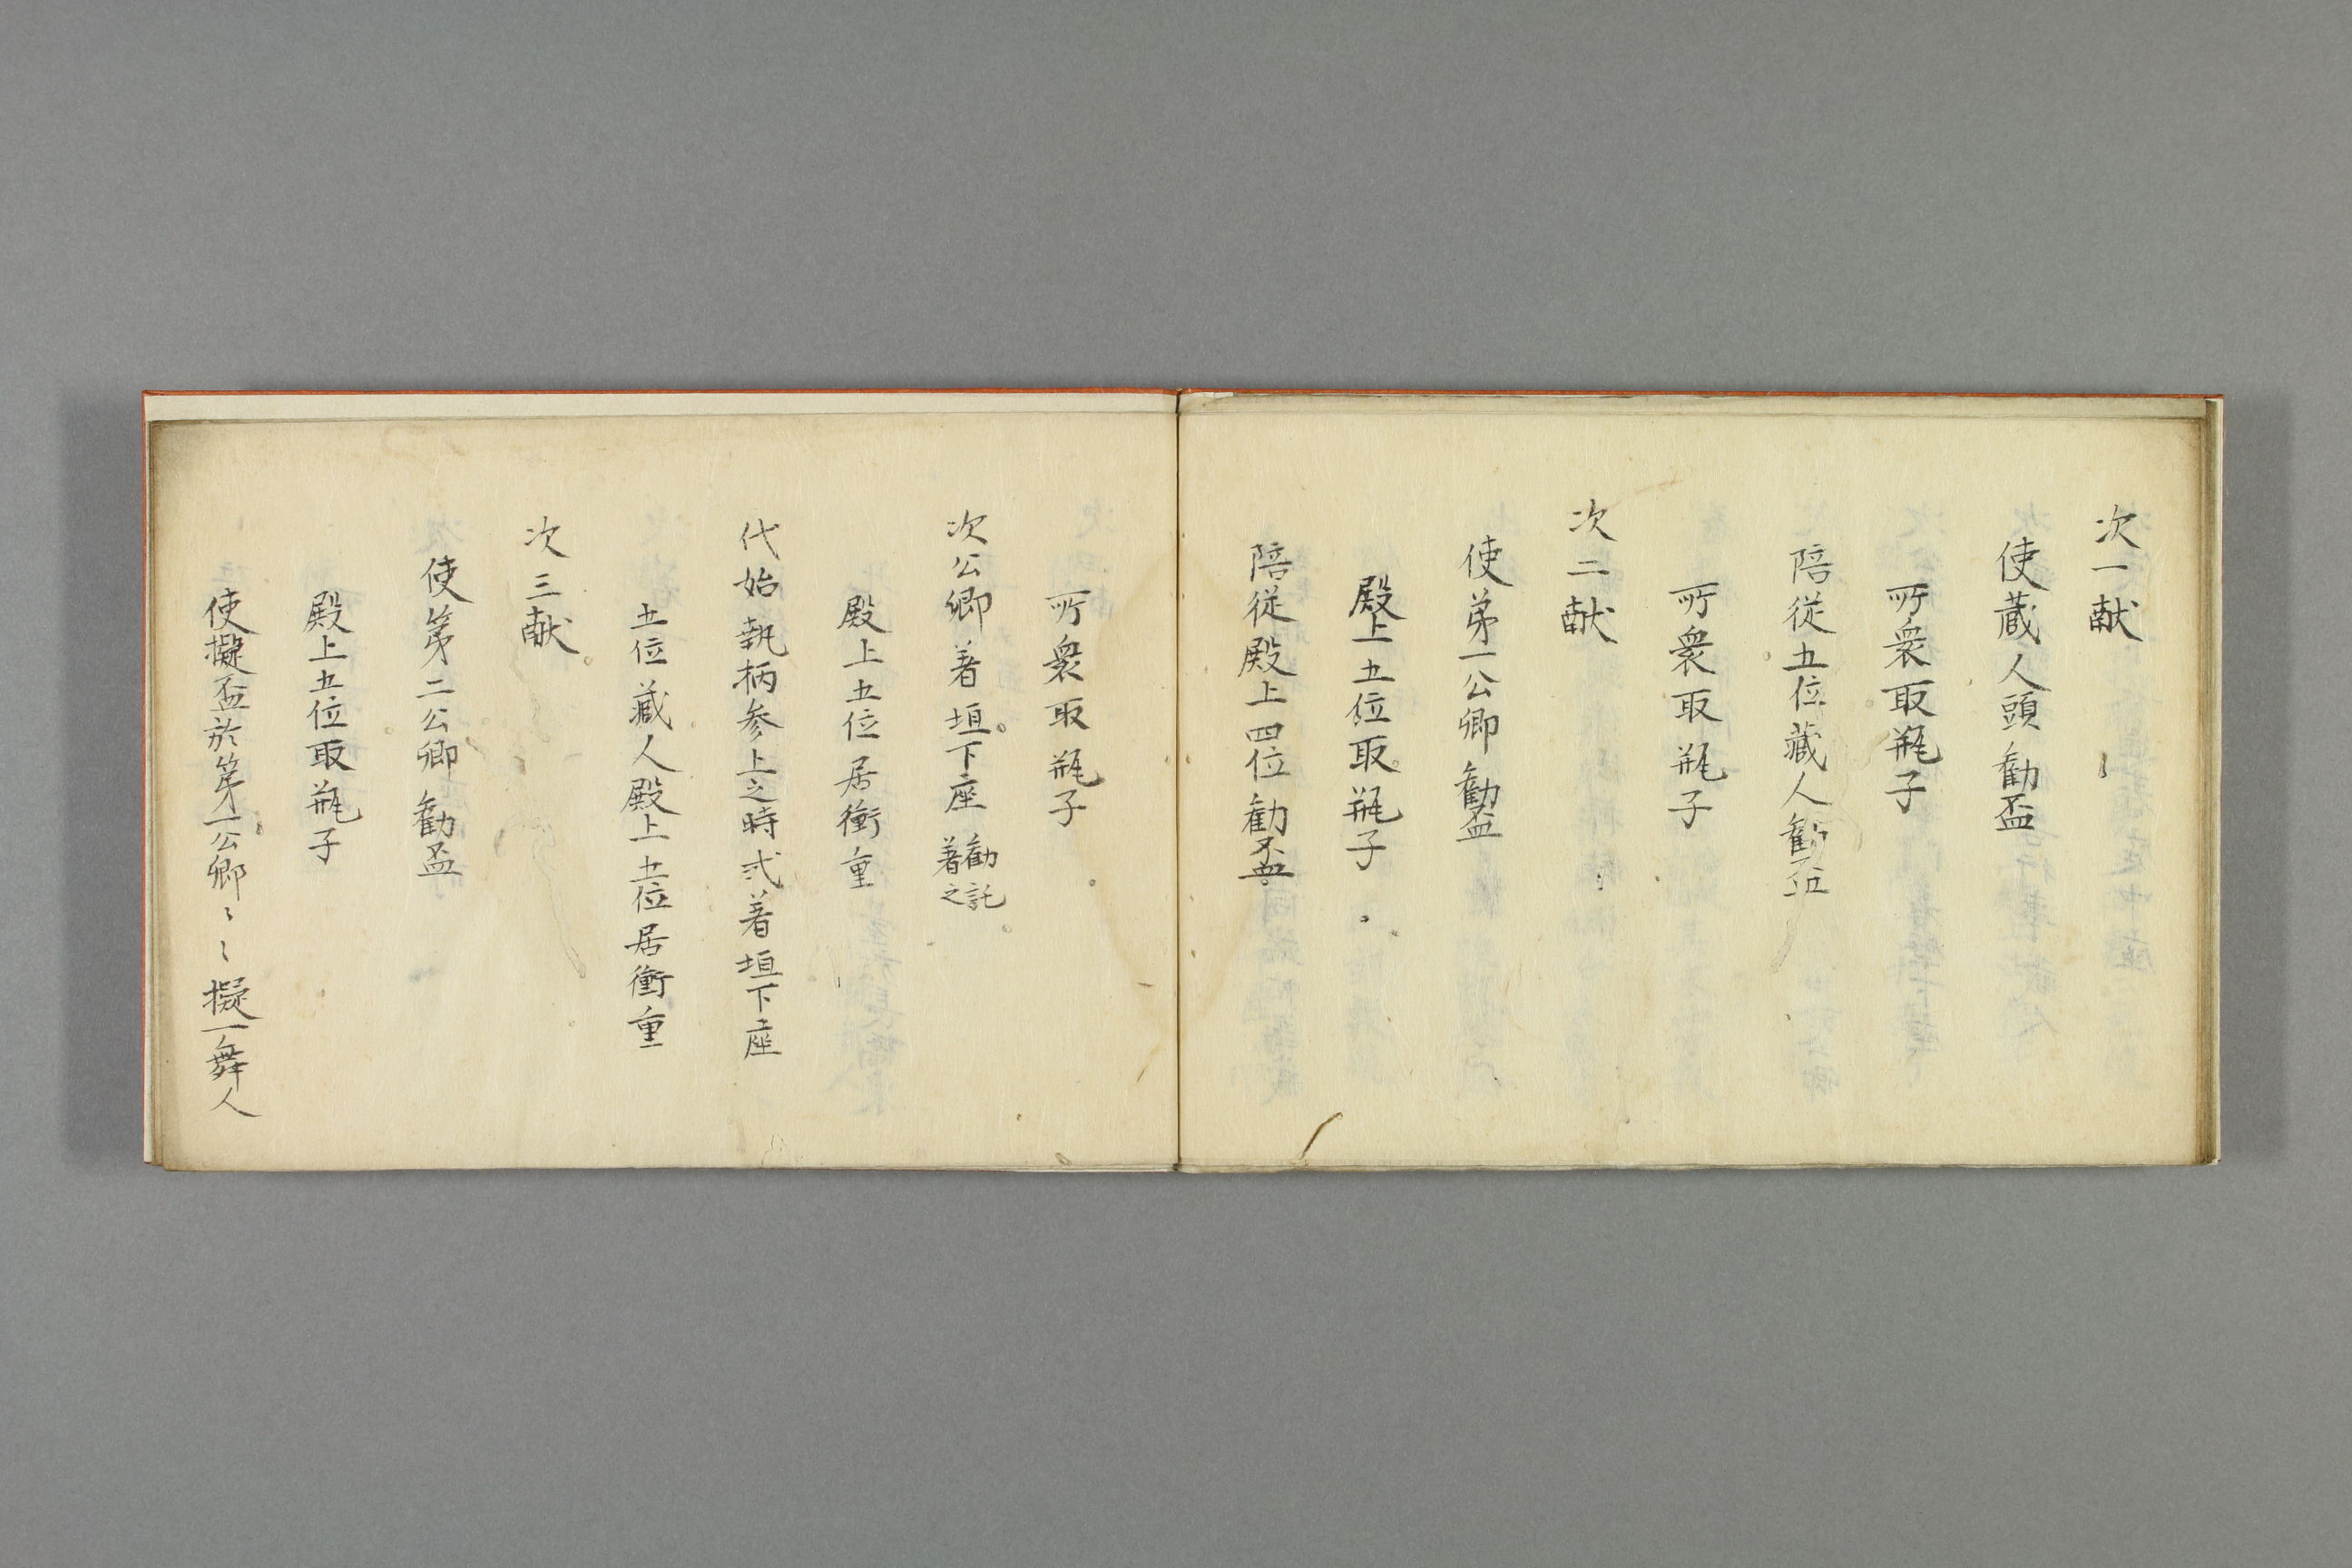 次一献
使蔵人頭勧盃
所衆取瓶子
陪従五位蔵人勧盃
所衆取瓶子
次二献
使第一公卿勧盃
殿上五位取瓶子
陪従殿上四位勧盃
所衆取瓶子
次公卿著垣下座 勧訖著之
殿上五位居衝重
代始執柄参上之時弍著垣下座
五位蔵人殿上五位居衝重
次三献
使第二公卿勧盃
殿上五位取瓶子
使擬盃於第一公卿〻〻擬一舞人